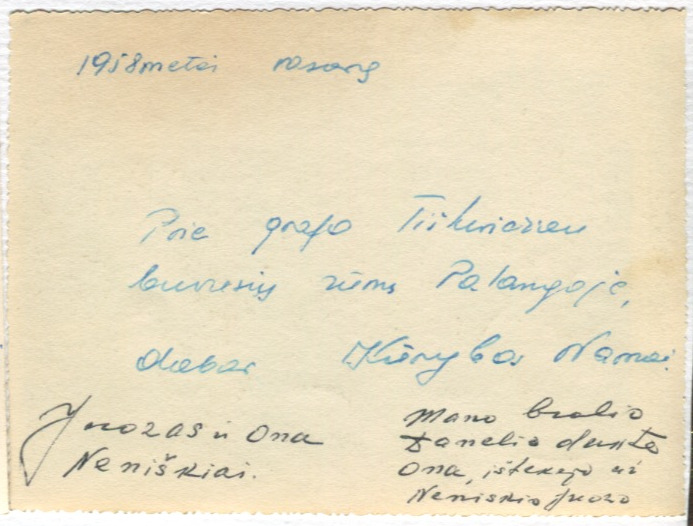 1958 metai vasarą
Prie grafo Tiškevičiaus
buvusių rūmų Palangoje,
dabar Kūrybos Namai.
Juozas ir Ona
Neniškiai.
Mano brolio
Danelio dukte
Ona, ištekejo už
Neniskio Juozo